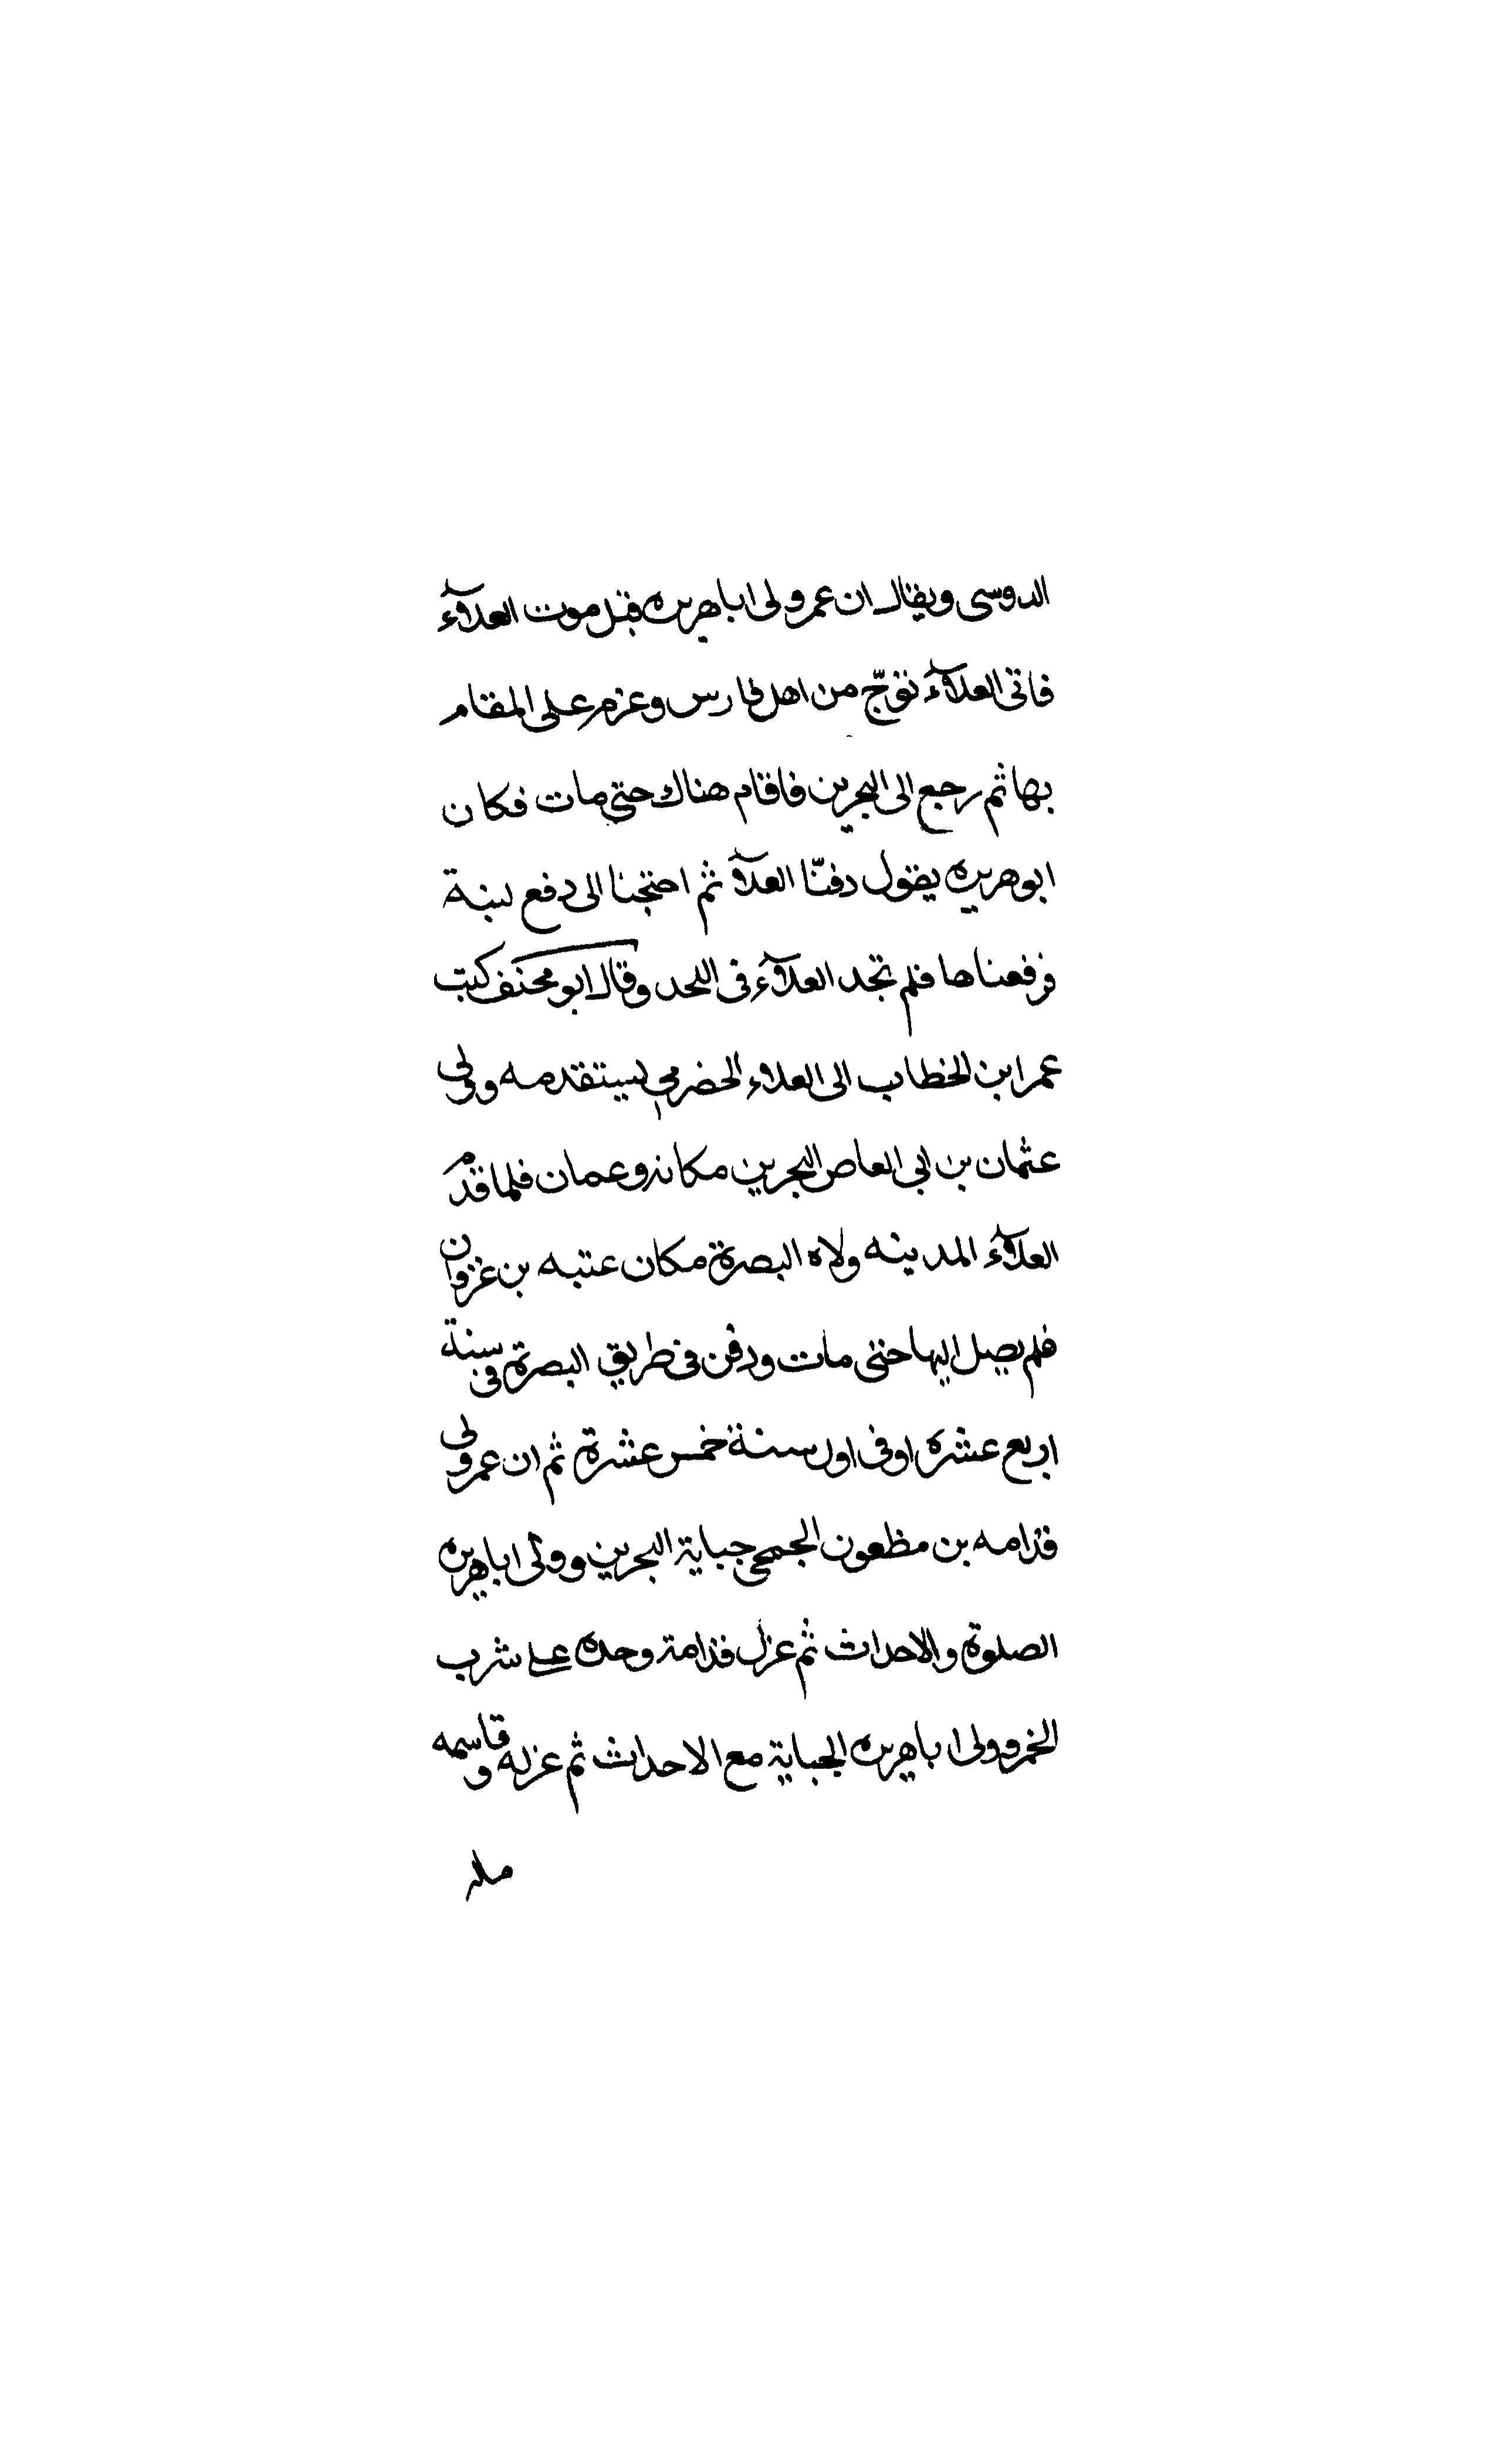 الدوسى ويقال ان عمر ولى اباهريره قبل موت العلآء
فاتى العلآء توّج من اهل فارس وعزم على المقام
بها ثم رجع الى البحرين فاقام هناك حتى مات فكان
ابو هريره يقول دفنّا العلآ ثم احتجنا الى دفع لبنة
فرفعناها فلم نجد العلآء فى اللحد وقال ابو مخنف كتب
عمر ابن الخطاب الى العلاء الحضرمي ليستقدمه وولى
عثمان بن ابى العاص البحرين مكانه وعمان فلما قدم
العلآء المدينه ولاه البصرة مكان عتبه بن غزوان
فلم يصل اليها حتى مات ودفن فى طريق البصرة فى سنة
اربع عشره اوفى اول سنة خمس عشرة ثم ان عمر ولى
قدامه بن مظعون الجمحى جباية البحرين وولى اباهريره
الصلوة والاحداث ثم عزل قدامة وحده على شرب
الخمر وولى اباهريره الجباية مع الاحداث ثم عزله وقاسمه
ماله